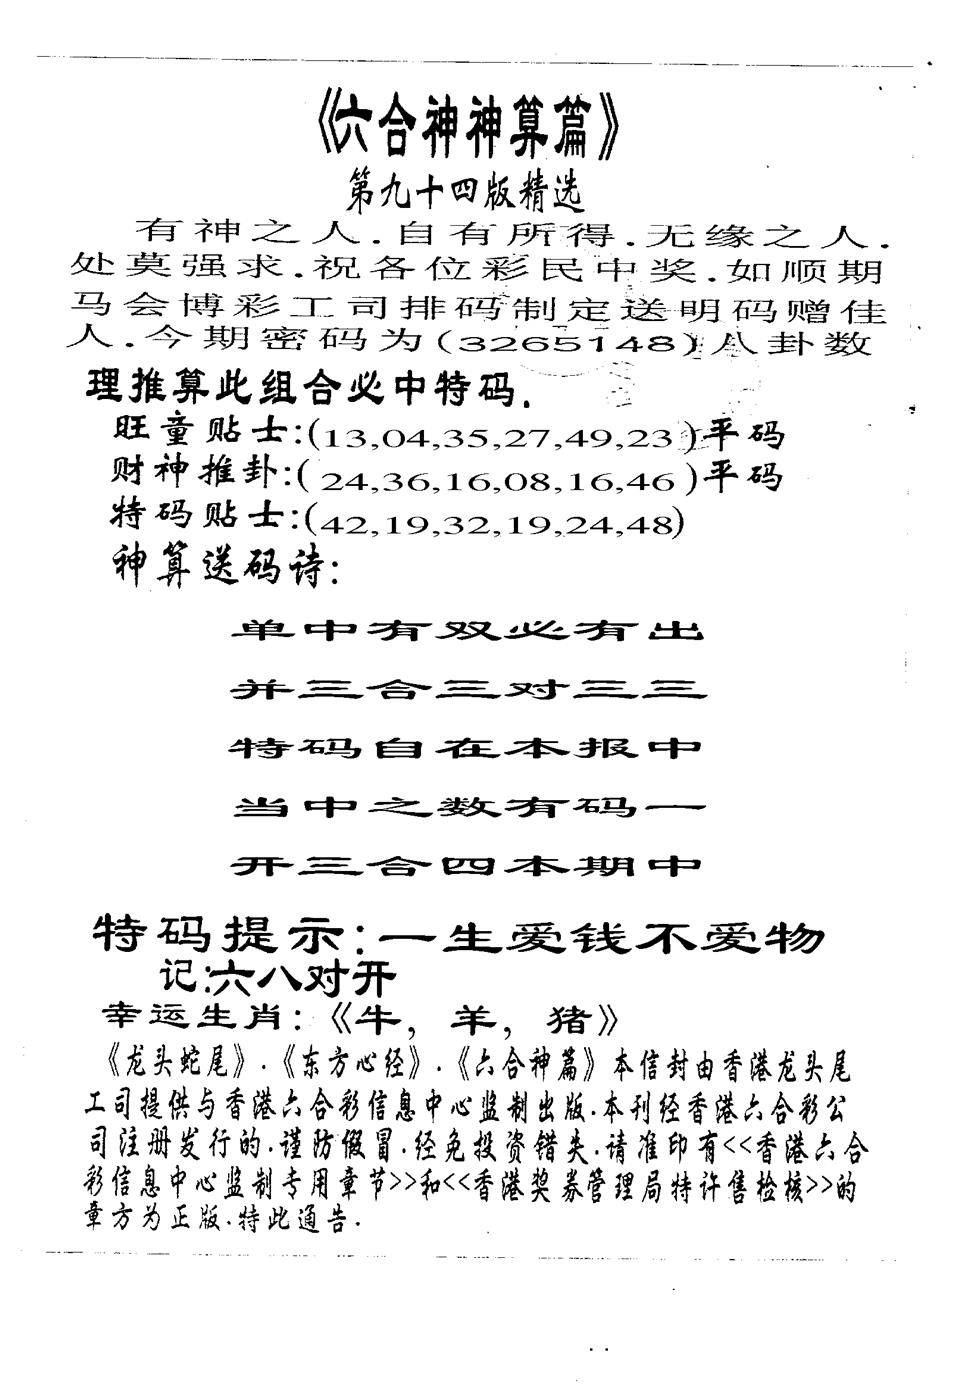 《六合神神算篇》
第九十四版精选
有神之人.自有所得.无缘之人.
处莫强求.祝各位彩民中奖.如顺期
马会博彩工司排码制定送明码赠佳
人.今期密码为(3265148)八卦数
理推算此组合必中特码.
旺童贴士:(13,04,35,27,49,23)平码
财神推卦:(24,36,16,08,16,46)平码
特码贴士:(42,19,32,19,24,48)
神算送码诗:
单中有双必有出
并三合三对三三
特码自在本报中
当中之数有码一
开三合四本期中
特码提示:一生爱钱不爱物
记:六八对开
幸运生肖:《牛,羊,猪》
《龙头蛇尾》.《东方心经》.《六合神篇》本信封由香港龙头尾
工司提供与香港六合彩信息中心监制出版.本刊经香港六合彩公
司注册发行的.谨防假冒.经免投资错失.请准印有<<香港六合
彩信息中心监制专用章节>>和<<香港奖券管理局特许售检核>>的
章方为正版.特此通告.